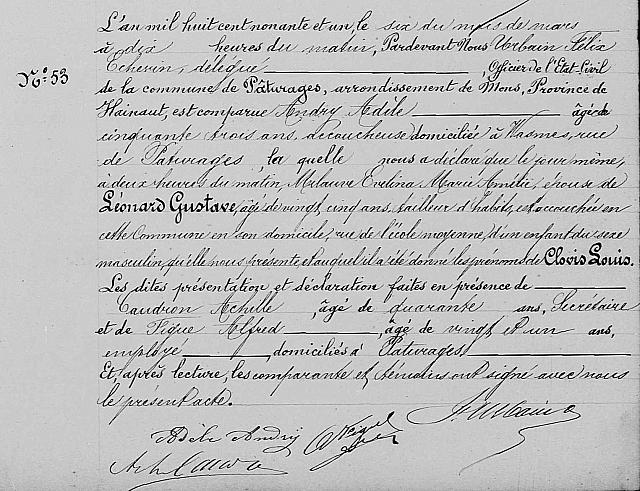 L'an mil huit cent nonante et un, le six du mois de mars
à dix heures du matin, Pardevant Nous Urbain Félix
Echevin, délégué, Officier de l'Etat-Civil
N° 53
de la commune de Pâturages, arrondissement de Mons, Province de
Hainaut, est comparue Andry Adèle âgée de
cinquante trois ans, accoucheuse domiciliée à Wasmes, rue
de Pâturages, la quelle nous a déclaré que le jour même,
à deux heures du matin, Evelina Marie Amélie, épouse de
Léonard Gustave, âgée de vingt cinq ans, tailleur d'habits, est accouchée en
cette Commune en son domicile, rue de l'école moyenne, d'un enfant du sexe
masculin, qu'elle nous présente, et auquel il a été donné les prénoms de Clovis Louis.
Les dites présentation et déclaration faites en présence de
Caudron Achille, âgé de quarante ans, Secrétaire
et de Alfred, âgé de vingt et un ans,
employé, domiciliés à Pâturages
Et, après lecture, les comparante et témoins ont signé avec nous
le présent acte.
Adèle Andry